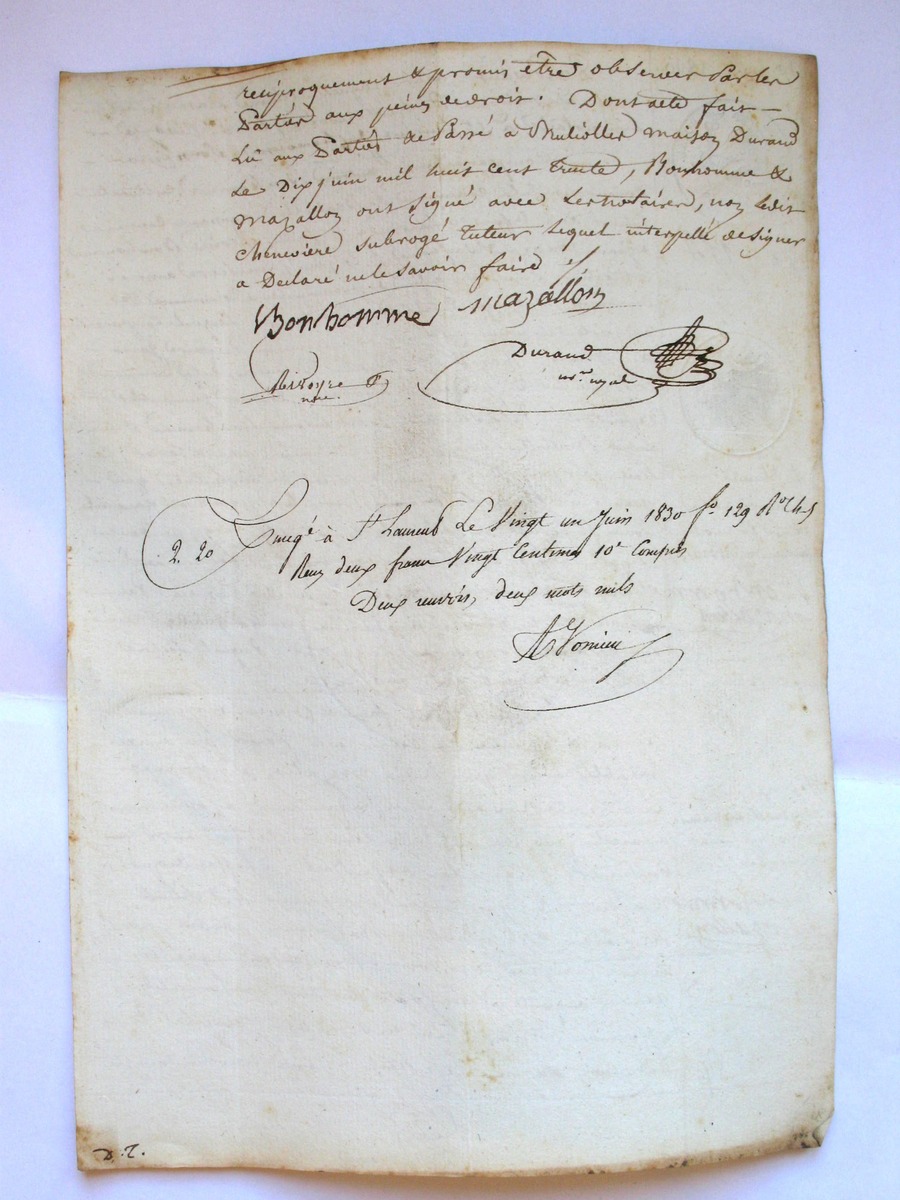 reciproquement & promis être observer Par les
Parties aux peines de droit. Dont acte fait —
Lû aux Parties & Passé a maison Durand
Le Dix juin mil huit cent trente, Bonhomme &
Mazalloz ont signé avec les notaires, noz ledit
Chenevière subrogé tuteur lequel interpellé de signer
a Declaré ne le savoir faire ./.
Bonhomme Mazallon
Durand
nre. royal
Rivoyre
nore.
2. 20 Enregé à St Laurent Le Vingt un Juin 1830 fo. 129 Ro C 4-5
Reçu deux francs Vingt Centimes 10e Compris
Deux renvois, deux mots nuls
D. T.